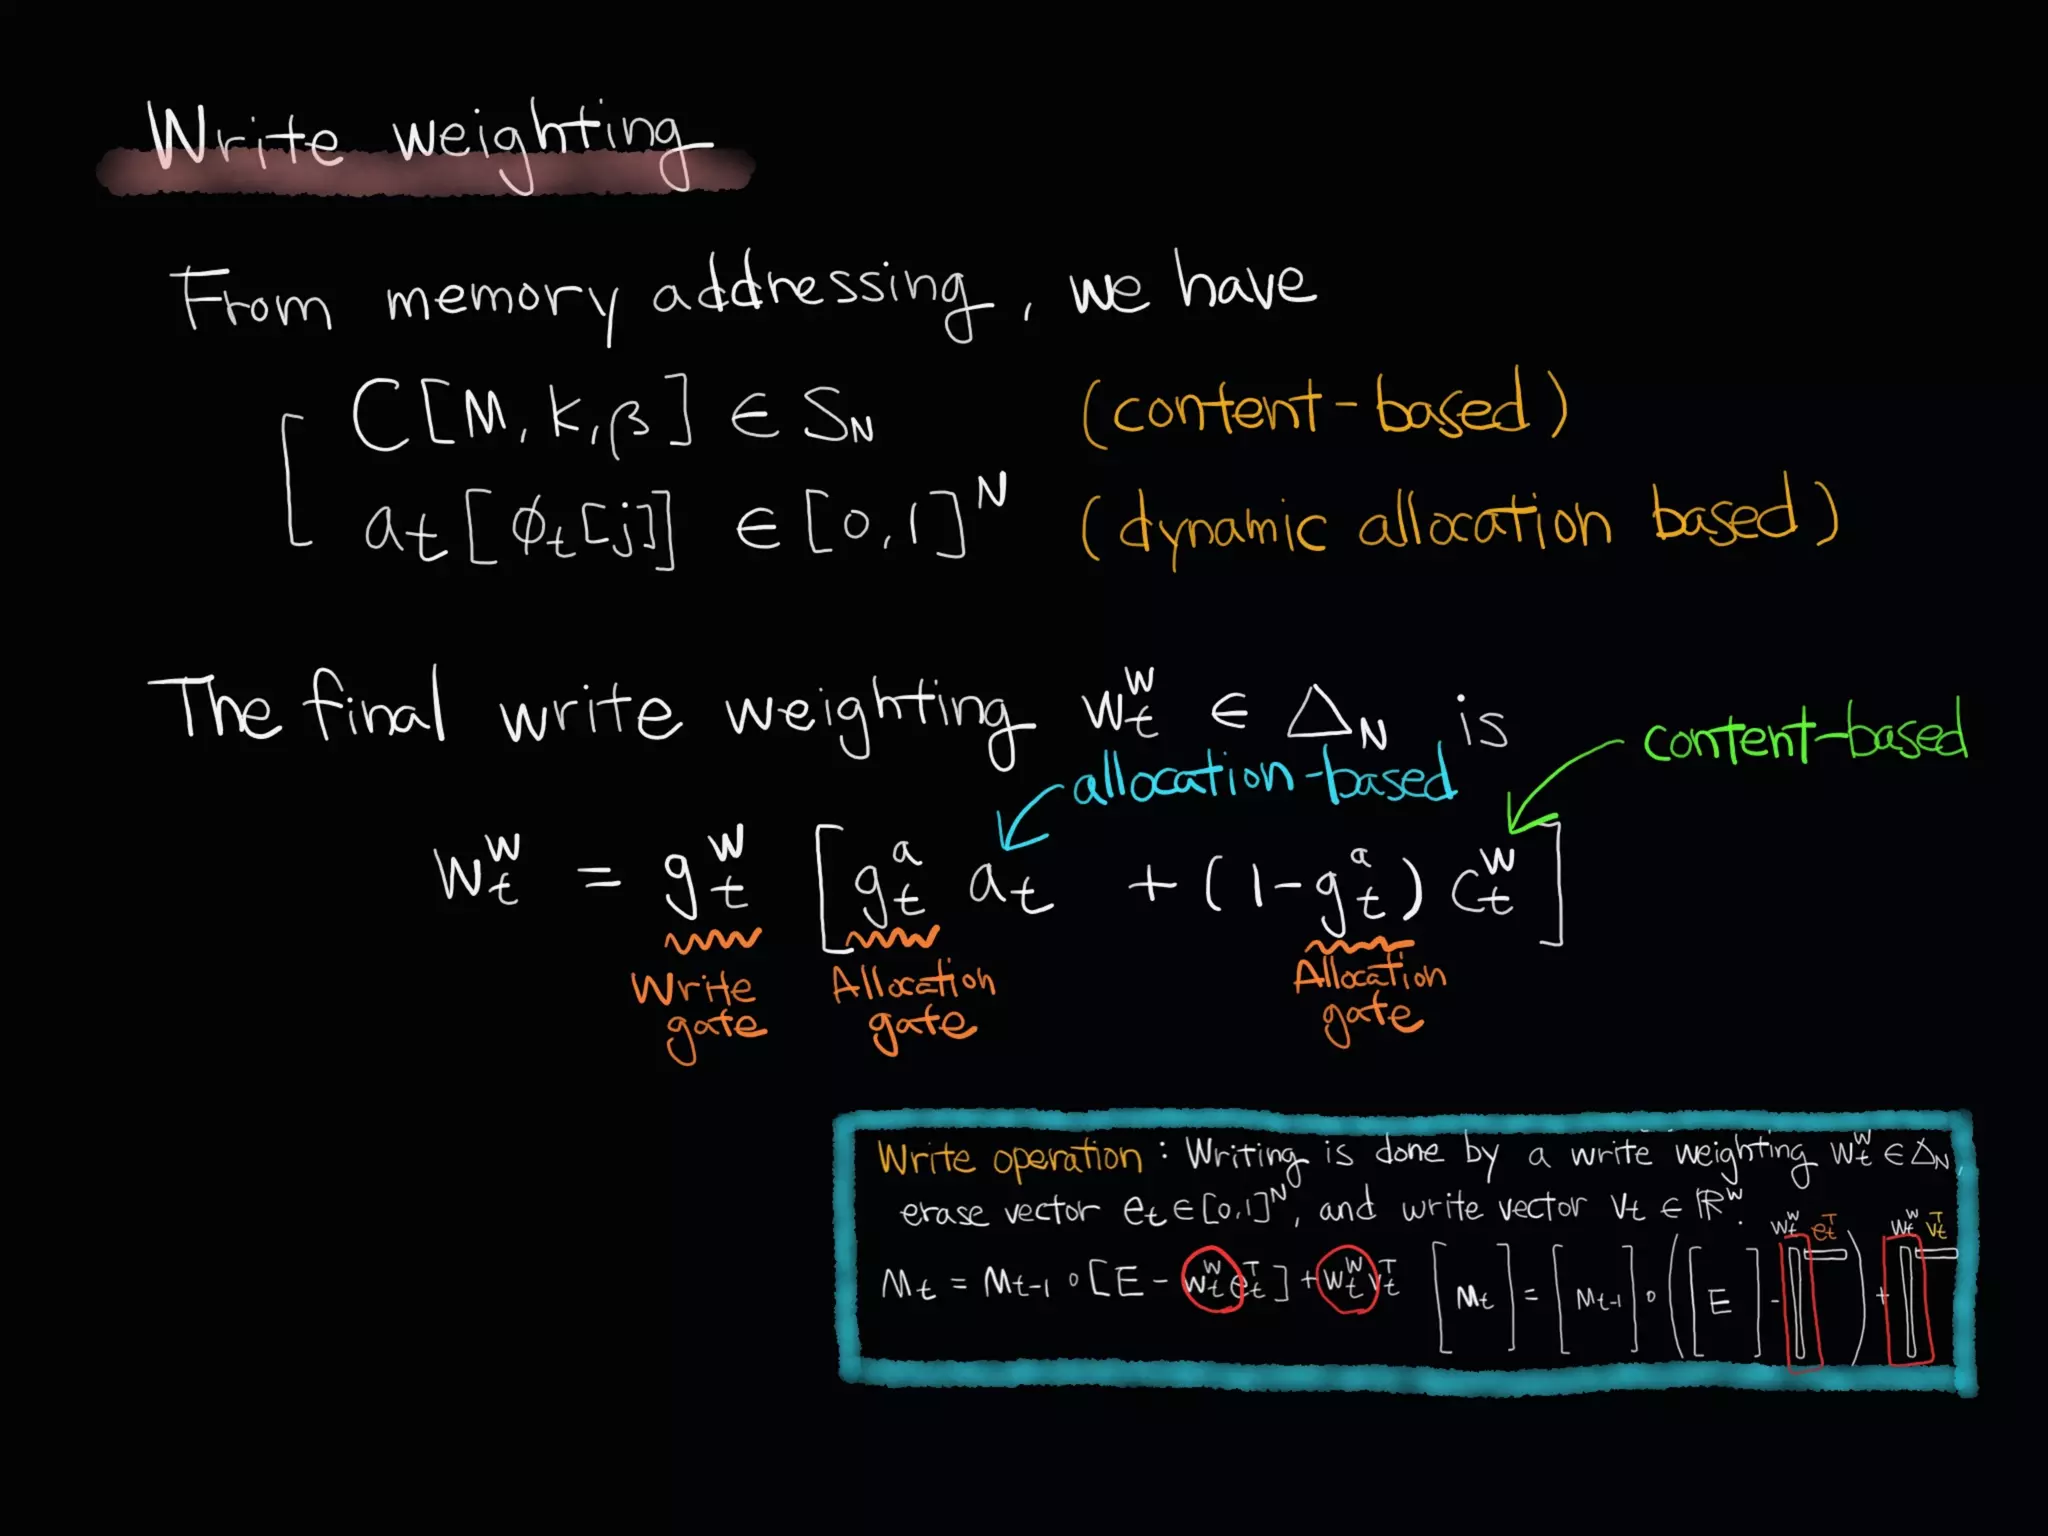 Write weighting
From memory addressing, we have
C[M, k, β] ∈ S_N (content-based)
a_t[φ_t[j]] ∈ [0,1]^N (dynamic allocation based)
The final write weighting w_t^w ∈ Δ_N is
allocation-based
content-based
w_t^w = g_t^w [g_t^a a_t + (1-g_t^a) c_t^w]
Write gate
Allocation gate
Allocation gate
Write operation : Writing is done by a write weighting w_t^w ∈ Δ_N,
erase vector e_t ∈ [0,1]^N, and write vector v_t ∈ ℝ^W.
w_t^w e_t^T w_t^w v_t^T
M_t = M_{t-1} ∘ [E - w_t^w e_t^T] + w_t^w v_t^T [M_t] = [M_{t-1}] ∘ ([E] - ) +